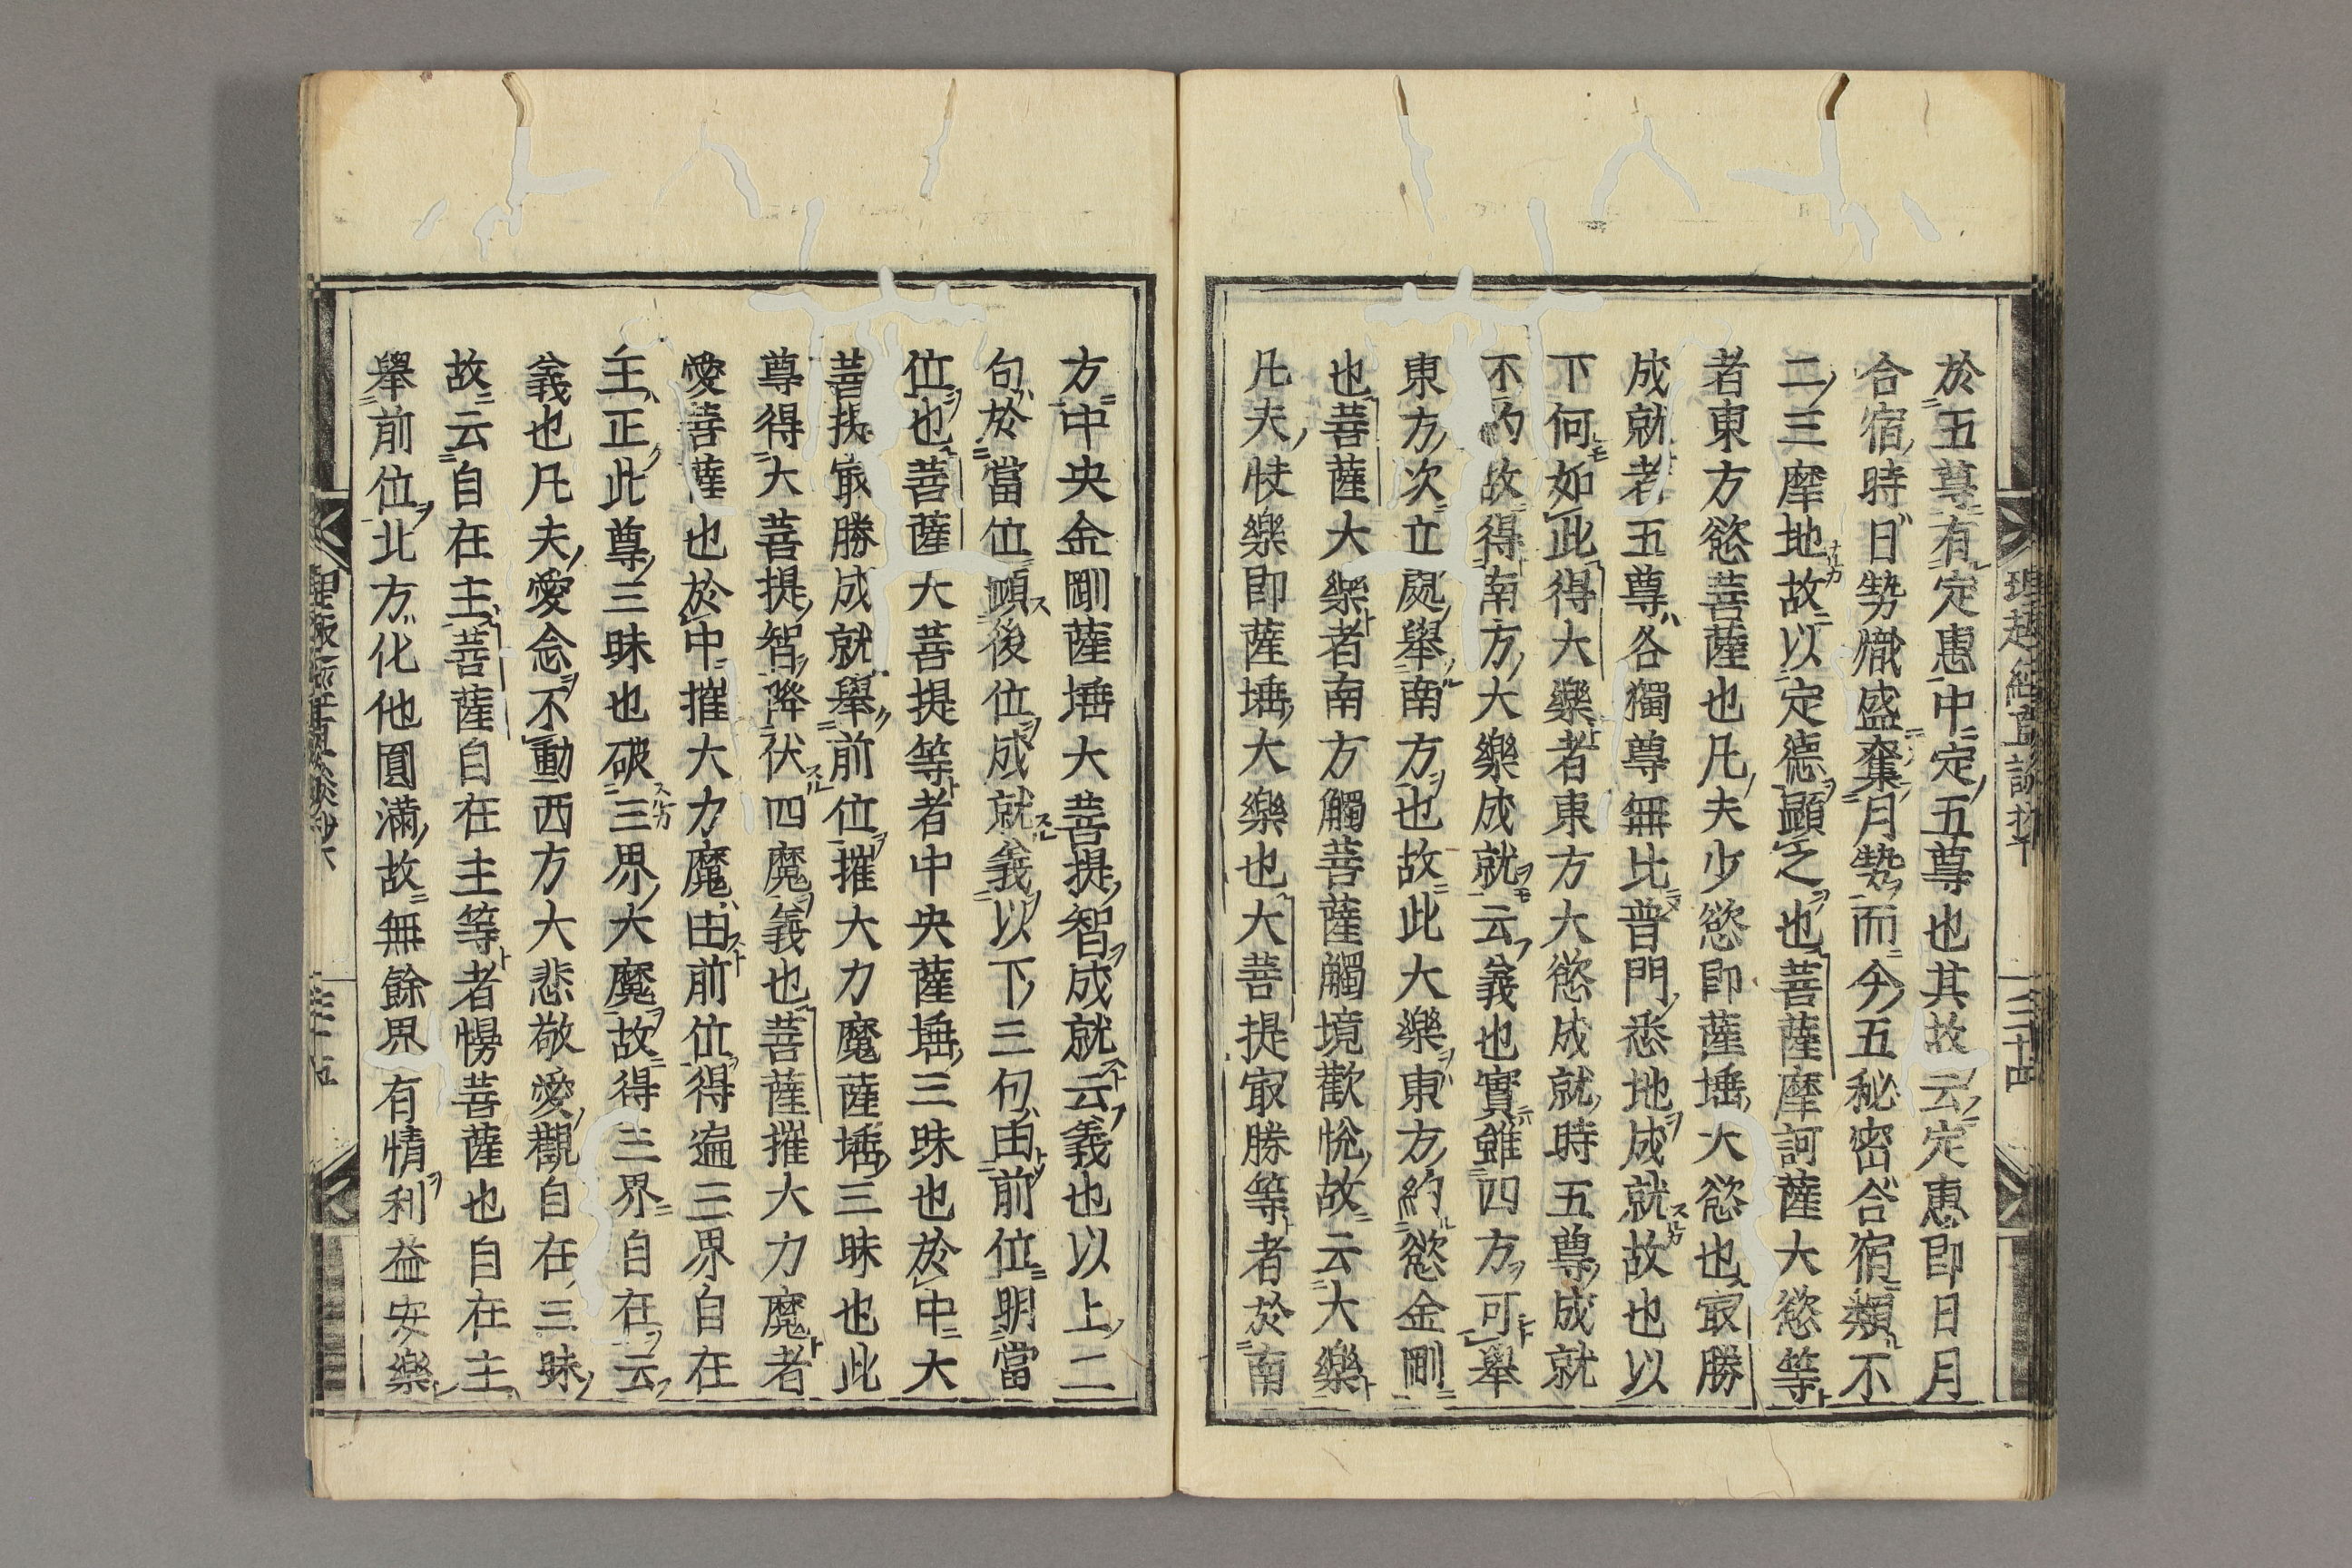 於五尊有定惠中定五尊也其故云定惠即日月
合宿時日勢熾盛奪月勢而今五秘密合宿類不
二三摩地故以定德顯之也菩薩摩訶薩大慾等
者東方慾菩薩也凡夫少慾即薩埵大慾也最勝
成就者五尊各獨尊無比普門悉地成就故也以
下何如此得大樂者東方大慾成就時五尊成就
不約故得南方大樂成就云義也實雖四方可舉
東方次立處舉南方也故此大樂東方約慾金剛
也菩薩大樂者南方觸菩薩觸境歡悅故云大樂
凡夫快樂即薩埵大樂也大菩提最勝等者於南
方中央金剛薩埵大菩提智成就云義也以上二
句於當位顯後位成就義以下三句由前位明當
位也菩薩大菩提等者中央薩埵三昧也於中大
菩提最勝成就舉前位摧大力魔薩埵三昧也此
尊得大菩提智降伏四魔義也菩薩摧大力魔者
愛菩薩也於中摧大力魔由前位得遍三界自在
主正此尊三昧也破三界大魔故得三界自在云
義也凡夫愛念不動西方大悲敬愛觀自在三昧
故云自在主菩薩自在主等者慢菩薩也自在主
舉前位北方化他圓滿故無餘界有情利益安樂